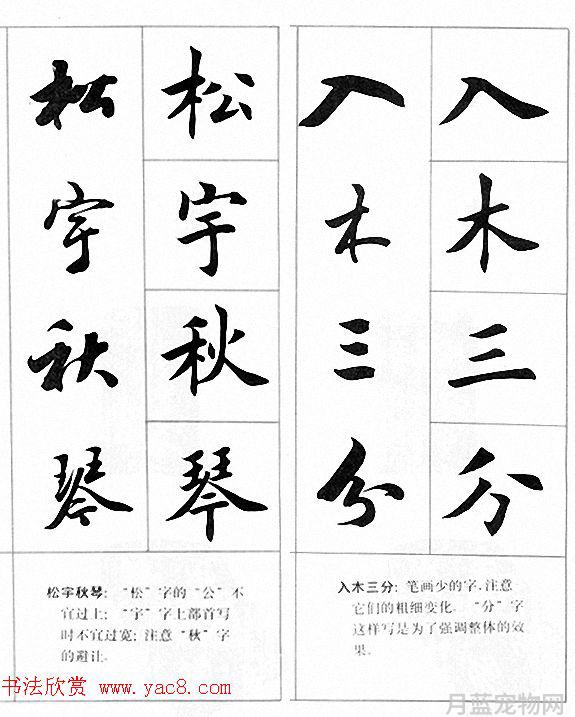 入
木
三
分
入
木
三
分
松
宇
秋
琴
松
宇
秋
琴
入木三分：笔画少的字，注意
它们的粗细变化。“分”字
这样写是为了强调整体的效
果。
松宇秋琴：“松”字的“公”不
宜过上；“宇”字上部首写
时不宜过宽；注意“秋”字
的避让。
书法欣赏 www.yac8.com
月蓝宠物网